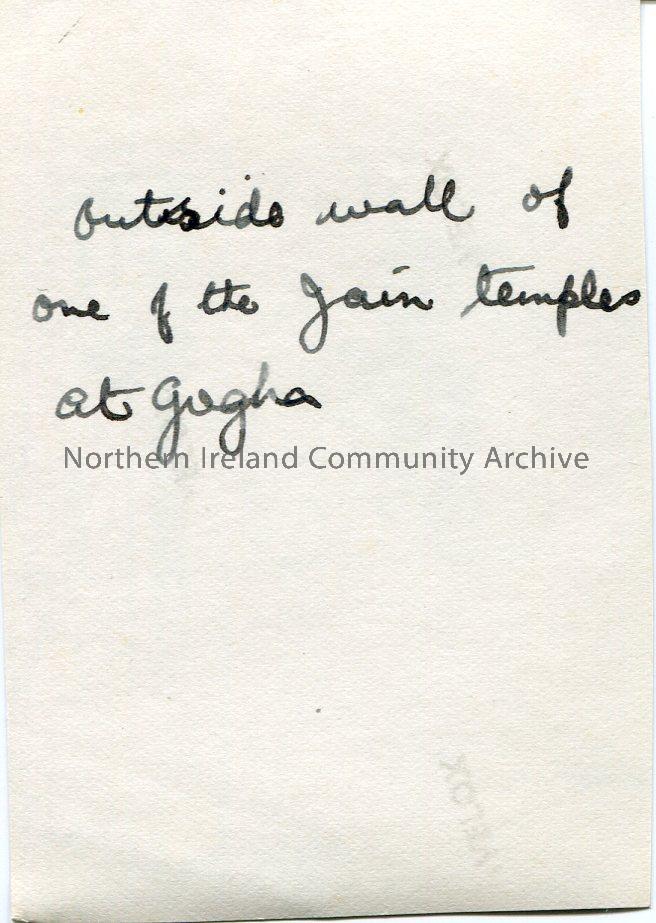 outside wall of
one of the Jain temples
at Gogha
Northern Ireland Community Archive